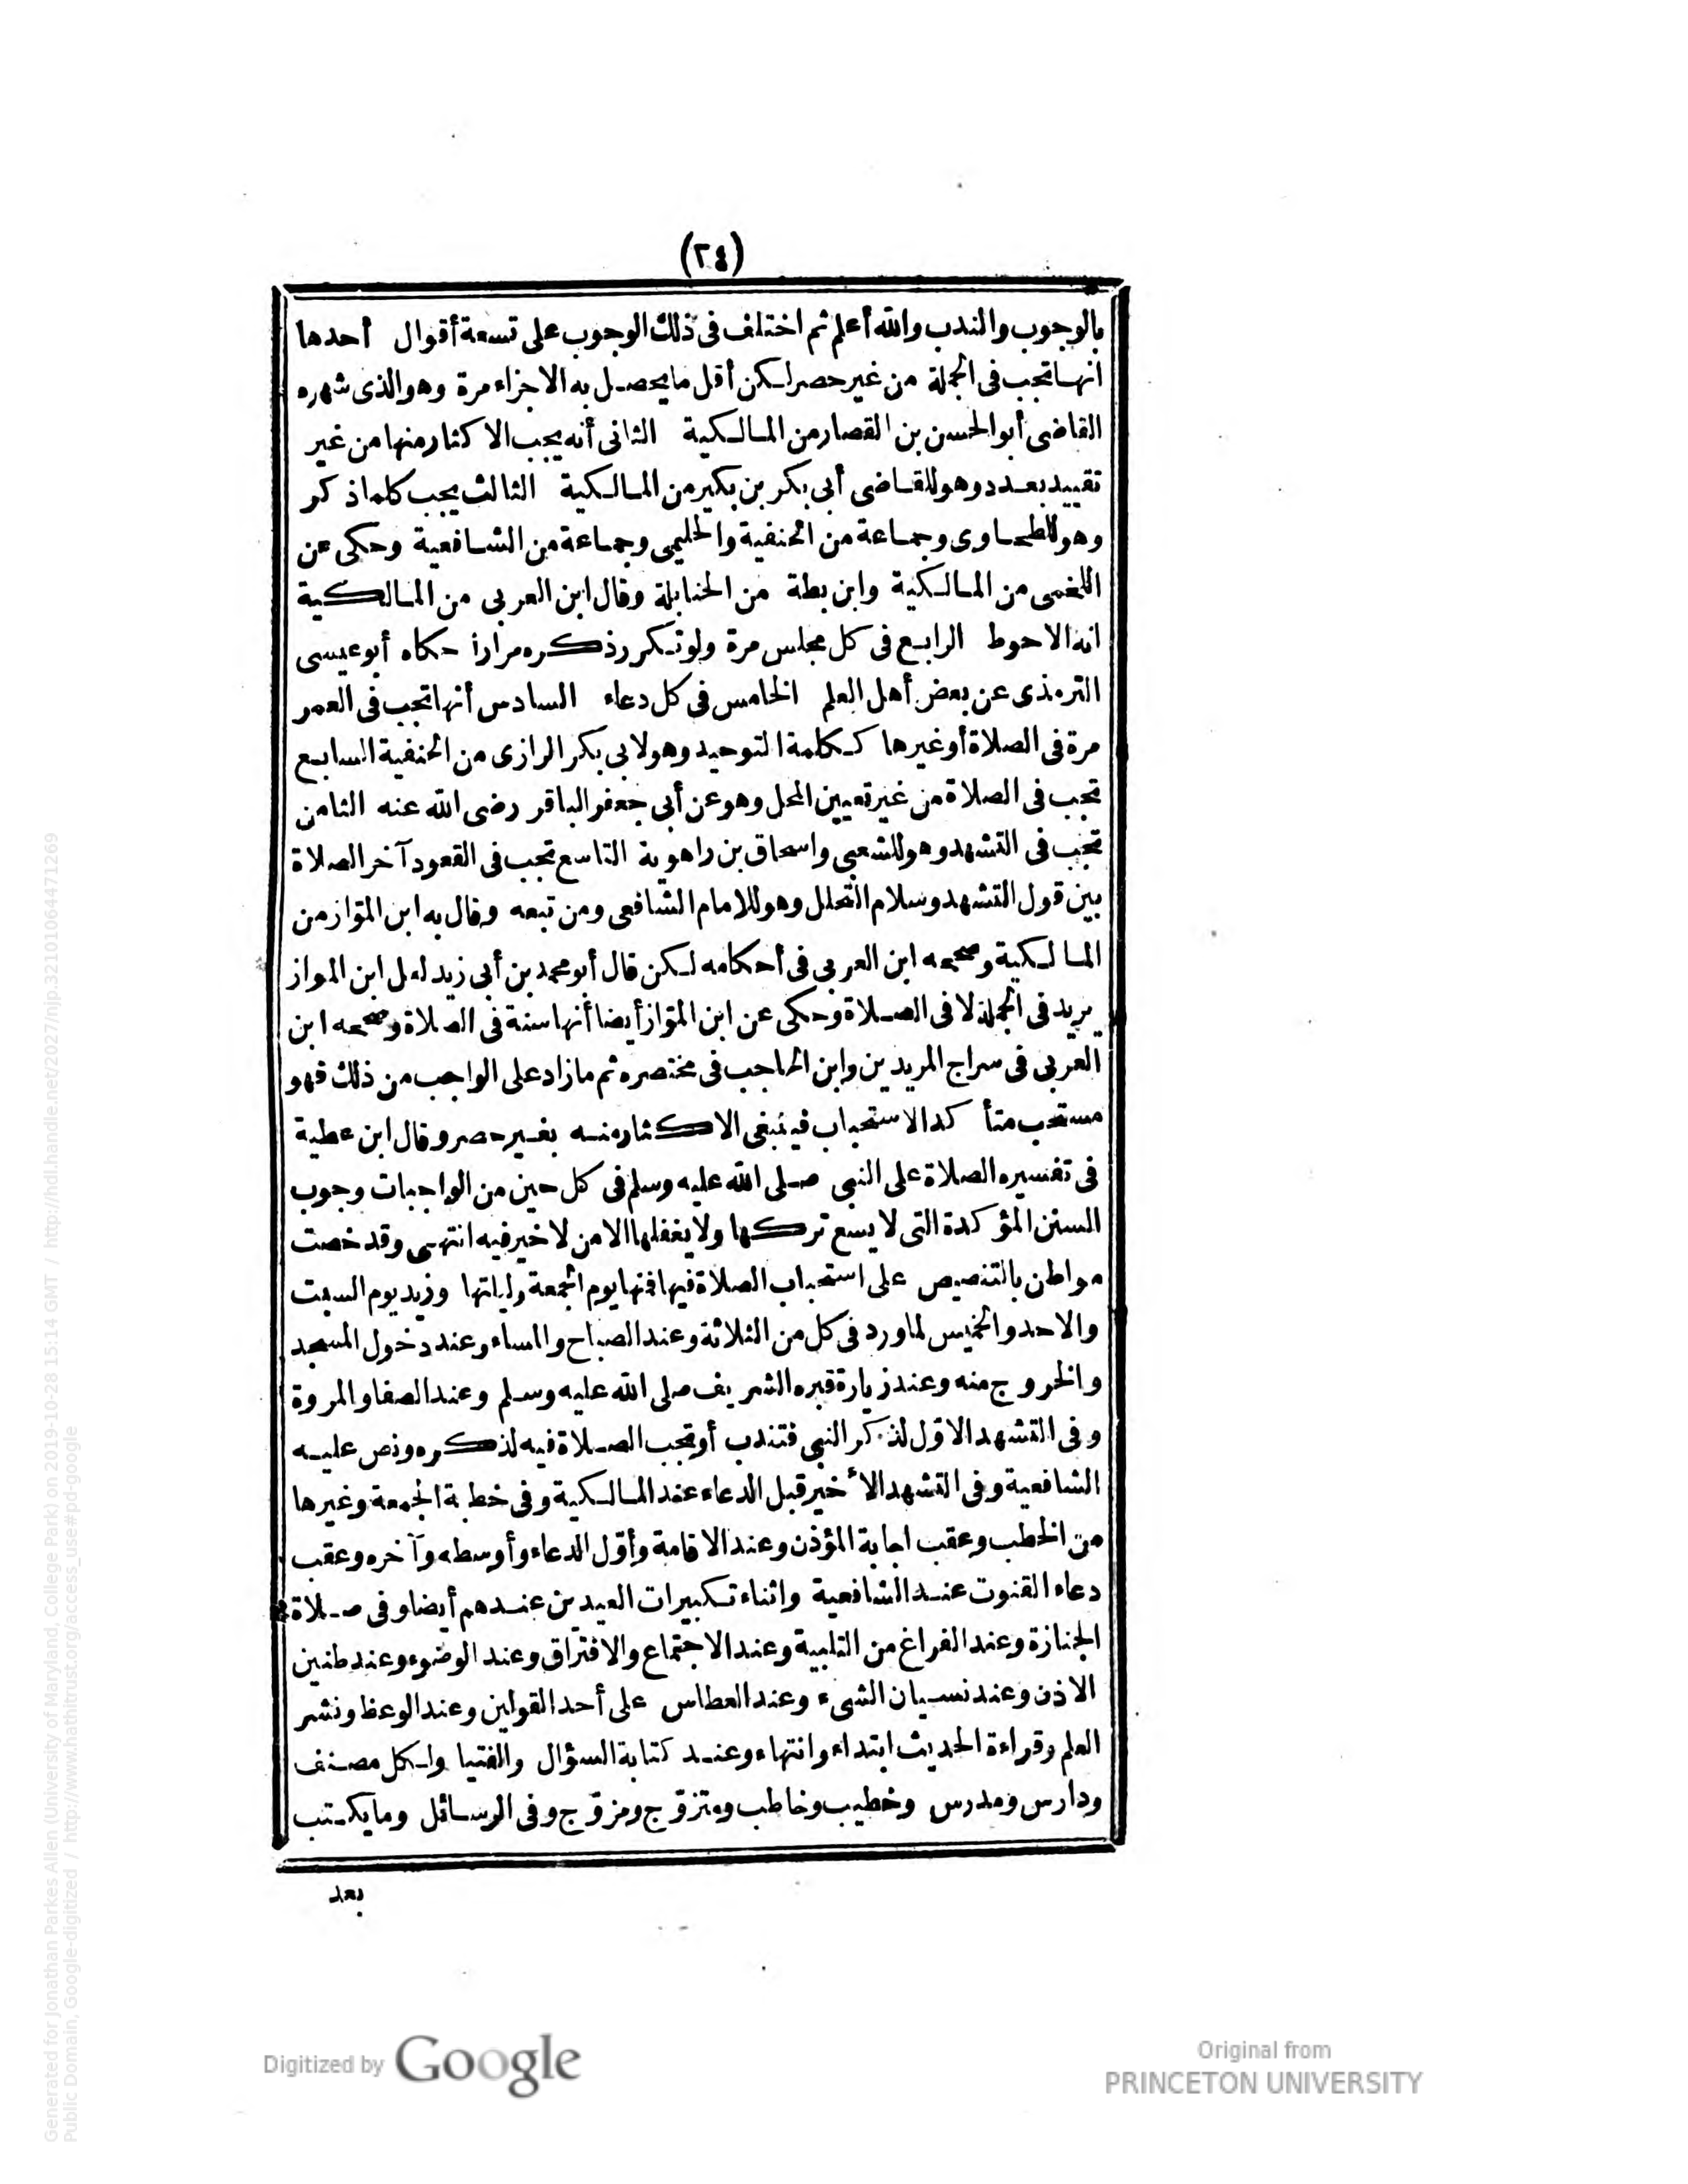 (٢٤)
بالوجوب والندب والله أعلم ثم اختلف فى ذلك الوجوب على تسعة أقوال أحدها
انها تجب فى الجملة من غير حصر لكن أقل ما يحصل به الاجزاء مرة وهو الذى شهره
القاضى أبو الحسن بن القصار من المالكية الثانى أنه يجب الاكثار منها من غير
تقييد بعدد وهو للقاضى أبى بكر بن بكير من المالكية الثالث يجب كلما ذكر
وهو للطحاوى وجماعة من الحنفية والحليمى وجماعة من الشافعية وحكى عن
اللخمى من المالكية وابن بطة من الحنابلة وقال ابن العربى من المالكية
انه الاحوط الرابع فى كل مجلس مرة ولو تكرر ذكره مرارا حكاه أبو عيسى
الترمذى عن بعض أهل العلم الخامس فى كل دعاء السادس أنها تجب فى العمر
مرة فى الصلاة أو غيرها ككلمة التوحيد وهو لابى بكر الرازى من الحنفية السابع
تجب فى الصلاة من غير تعيين المحل وهو عن أبى جعفر الباقر رضى الله عنه الثامن
تجب فى التشهد وهو للشعبى واسحاق بن راهوية التاسع تجب فى القعود آخر الصلاة
بين قول التشهد وسلام التحلل وهو للامام الشافعى ومن تبعه وقال به ابن الموّاز من
المالكية وصححه ابن العربى فى أحكامه لكن قال أبو محمد بن أبى زيد لعل ابن المواز
يريد فى الجملة لا فى الصلاة وحكى عن ابن الموّاز أيضا أنها سنة فى الصلاة وصححه ابن
العربى فى سراج المريدين وابن الحاجب فى مختصره ثم ما زاد على الواجب من ذلك فهو
مستحب متأكد الاستحباب فينبغى الاكثار منه بغير حصر وقال ابن عطية
فى تفسيره الصلاة على النبى صلى الله عليه وسلم فى كل حين من الواجبات وجوب
السنن المؤكدة التى لا يسع تركها ولا يغفلها الا من لا خير فيه انتهى وقد خصت
مواطن بالتنصيص على استحباب الصلاة فيها فمنها يوم الجمعة وليلتها وزيد يوم السبت
والاحد والخميس لما ورد فى كل من الثلاثة وعند الصباح والمساء وعند دخول المسجد
والخروج منه وعند زيارة قبره الشريف صلى الله عليه وسلم وعند الصفا والمروة
وفى التشهد الاوّل لذكر النبى فتندب أو تجب الصلاة فيه لذكره ونص عليه
الشافعية وفى التشهد الأخير قبل الدعاء عند المالكية وفى خطبة الجمعة وغيرها
من الخطب وعقب اجابة المؤذن وعند الاقامة وأوّل الدعاء وأوسطه وآخره وعقب
دعاء القنوت عند الشافعية واثناء تكبيرات العيدين عندهم أيضا وفى صلاة
الجنازة وعند الفراغ من التلبية وعند الاجتماع والافتراق وعند الوضوء وعند طنين
الاذن وعند نسيان الشىء وعند العطاس على أحد القولين وعند الوعظ ونشر
العلم وقراءة الحديث ابتداء وانتهاء وعند كتابة السؤال والفتيا ولكل مصنف
ودارس ومدرس وخطيب وخاطب ومتزوّج ومزوّج وفى الرسائل وما يكتب
بعد
Digitized by Google
Original from
PRINCETON UNIVERSITY
Generated for Jonathan Parkes Allen (University of Maryland, College Park) on 2019-10-28 15:14 GMT / http://hdl.handle.net/2027/njp.32101064471269
Public Domain, Google-digitized / http://www.hathitrust.org/access_use#pd-google